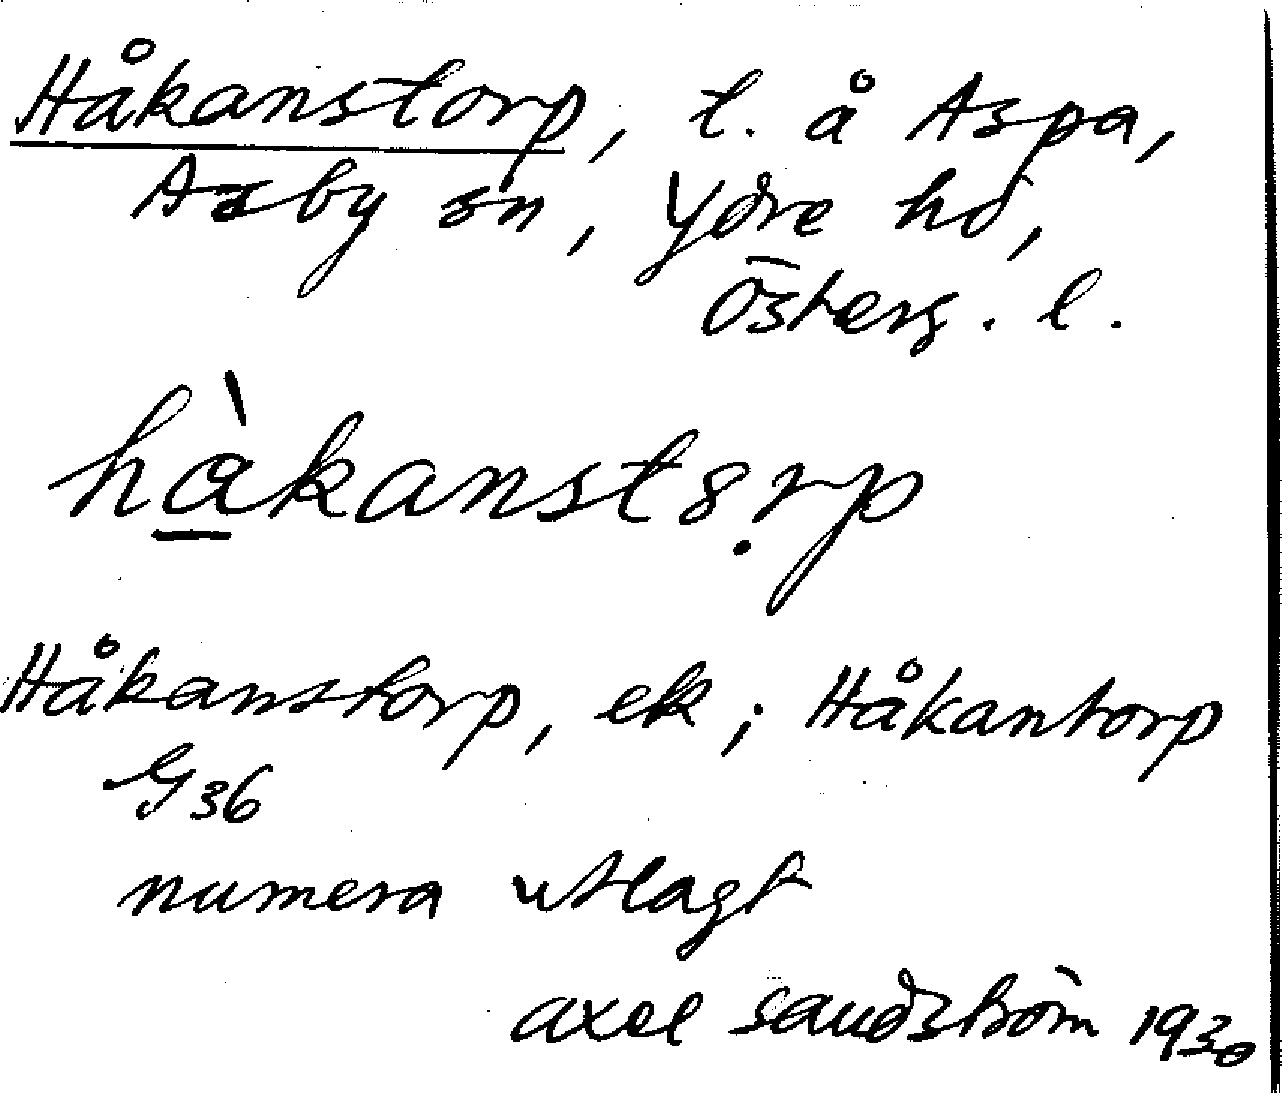 Håkanstorp, t. å Aspa,
Asby sn, Ydre hd,
Österg. l.
hàkanstorp
Håkanstorp, ek; Håkantorp
G 36
numera utlagt
axel sandström 1930